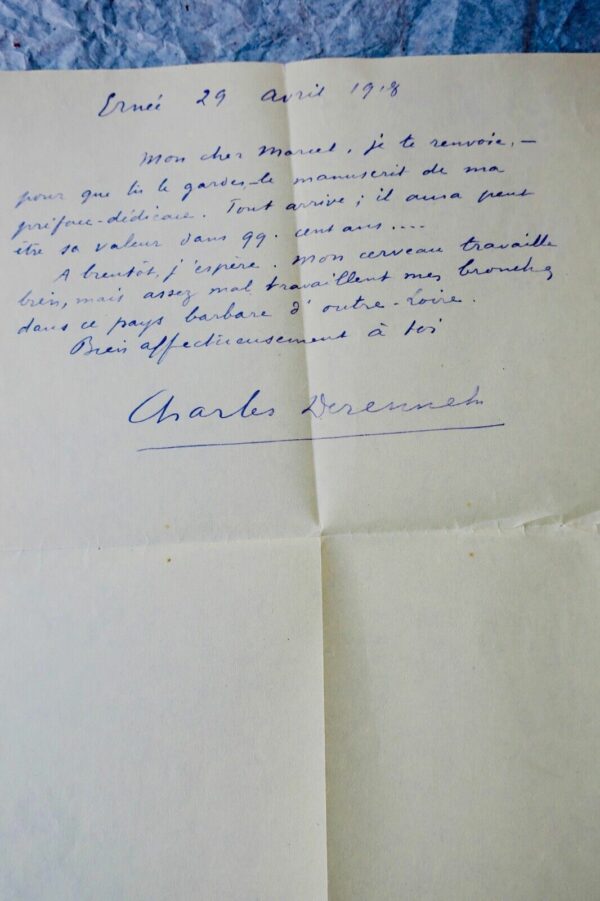 Ernée 29 avril 1918
Mon cher Marcel, je te renvoie, –
pour que tu le gardes – le manuscrit de ma
préface-dédicace. Tout arrive ; il aura peut
être sa valeur dans 99. cent ans....
A bientôt, j'espère. Mon cerveau travaille
bien, mais assez mal travaillent mes bronches
dans ce pays barbare d'outre-Loire.
Bien affectueusement à toi
Charles Derennes